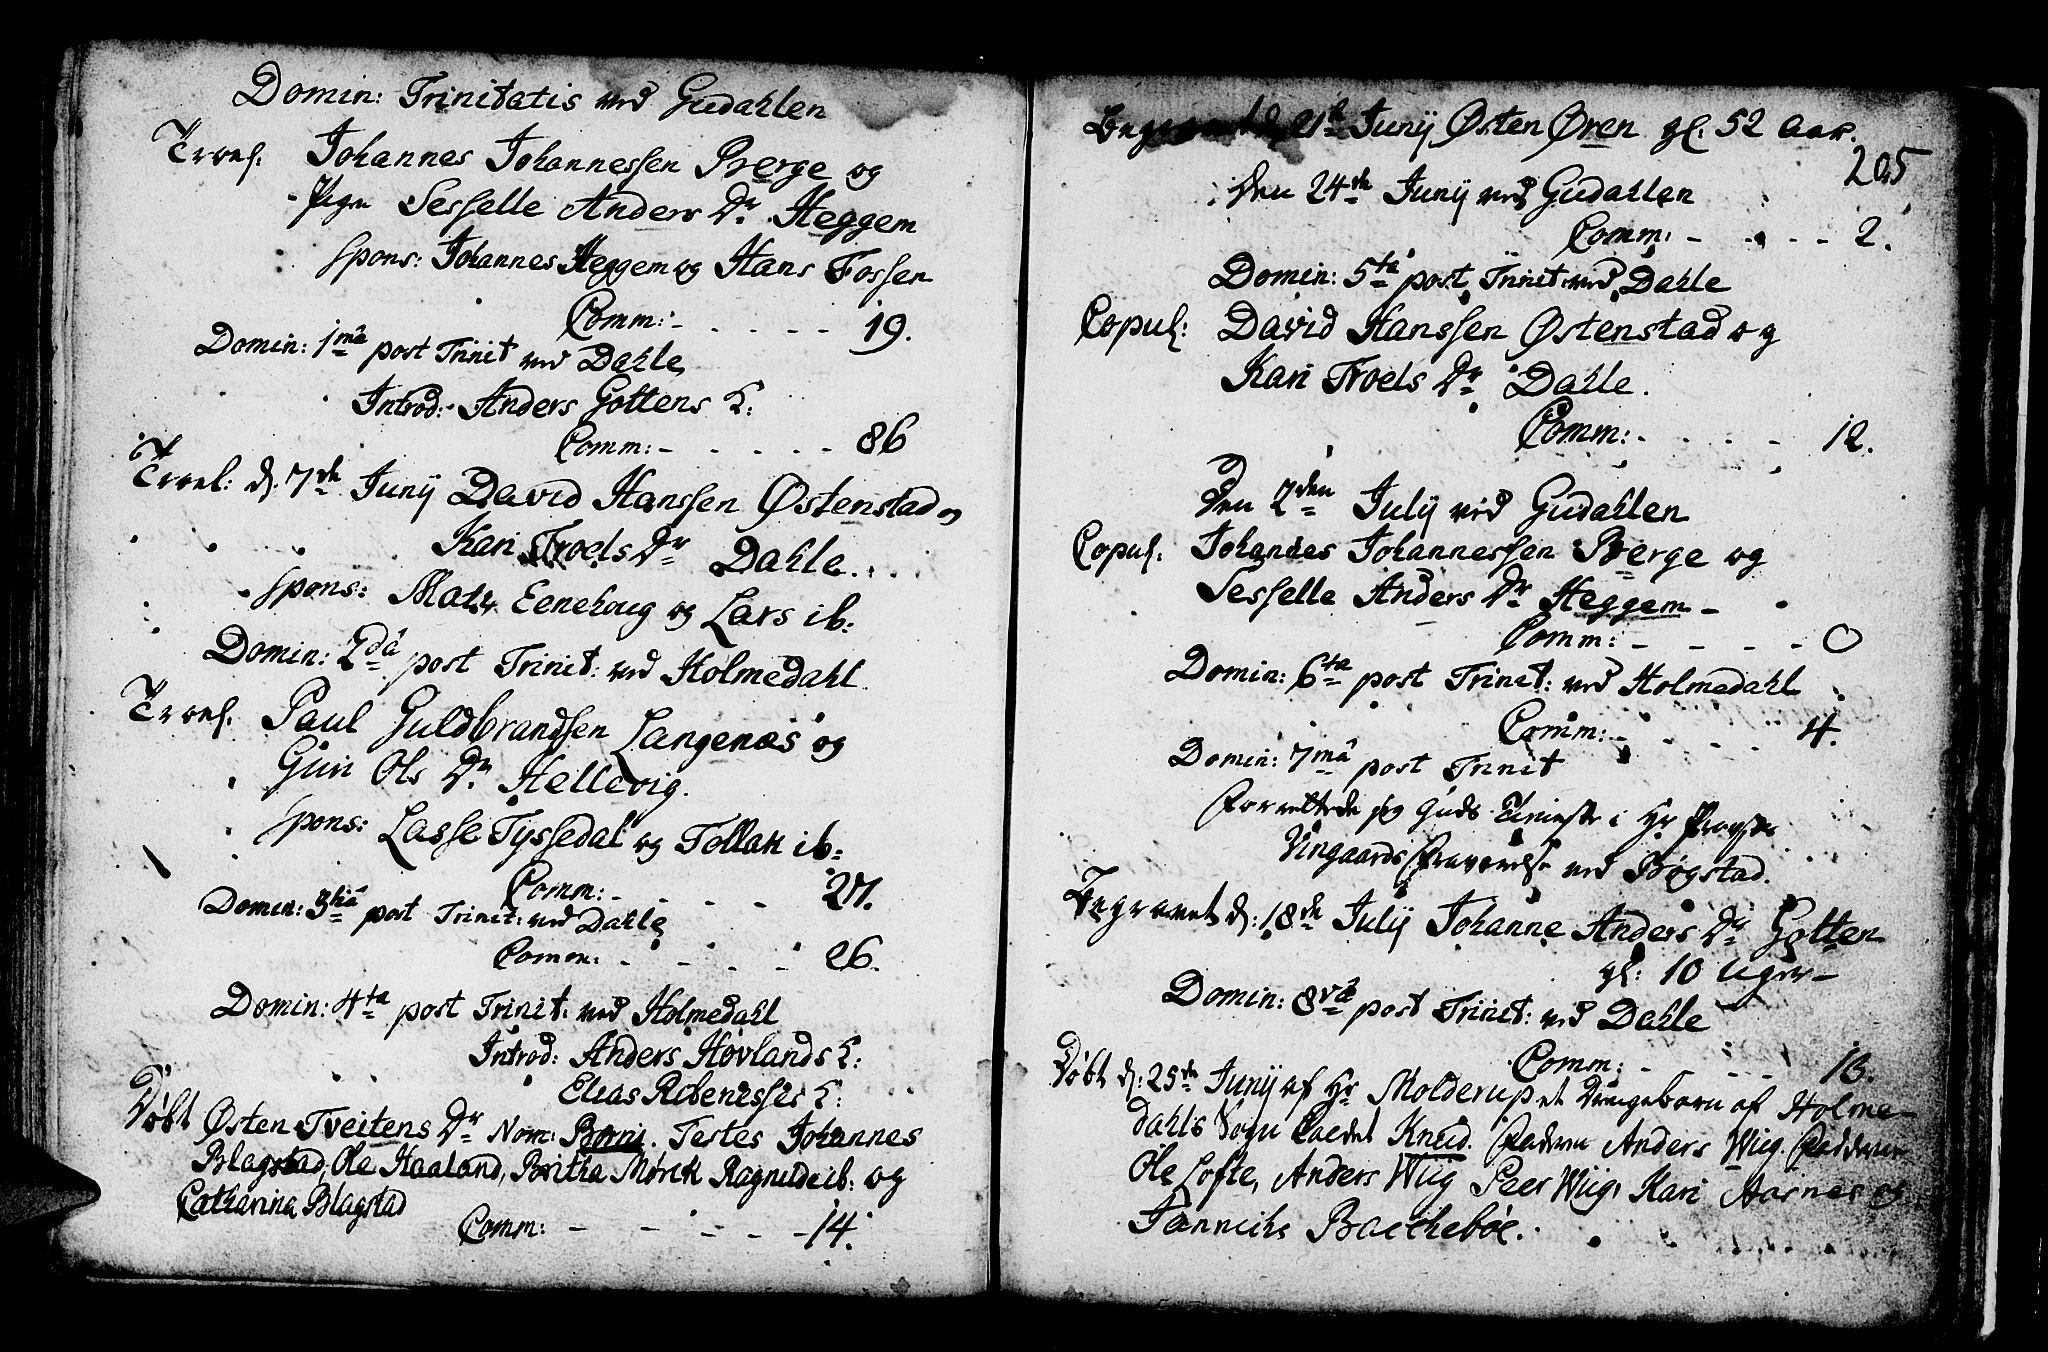 Domin: Trinitatis ved Gudahlen
Troel. Johannes Johannessen Berge og
Pige Sesselle Anders Dr Heggem
spons: Johannes Heggem og Hans Fossen
Comm: - - - - - 19.
Domin: 1mâ post Trinit ved Dahle
Introd: Anders Gottens K:
Comm: - - - - - 86
Troel: d: 7de Junij David Hanssen Østenstad og
Kari Troels Dr Dahle.
spons: Mats Eenehoug og Lars ib:
Domin: 2dâ post Trinit: ved Holmedahl
Troel. Paul Guldbrandsen Langenæs og
Guri Ols Dr Hellevig.
spons: Lasse Tyssedal og Tollak ib:
Comm: - - - - 27.
Domin: 3tiâ post Trinit: ved Dahle
Comm: - - - - 26.
Domin: 4ta post Trinit: ved Holmedahl
Introd: Anders Hovlands K:
Elias K:
Døbt Østen Tveitens Dr Nom: Berni. Testes Johannes
Blagstad, Ole Haaland, Britha Mørck Ragnilde ib: og
Catharina Blagstad
Comm: - - - - - 14.
Begravet d: 21de Junij Østen Øren gl. 52 Aar.
205
Den 24de Junij ved Gudahlen
Comm: - - - - 2.
Domin: 5ta post Trinit: ved Dahle
Copul: David Hanssen Østenstad og
Kari Troels Dr Dahle.
Comm: - - - - 12.
Den 2den July ved Gudahlen
Copul: Johannes Johannessen Berge og
Sesselle Anders Dr Heggem -
Comm: - - - - 0
Domin: 6ta post Trinit: ved Holmedahl
Comm: - - - - 4.
Domin: 7mâ post Trinit
forrettede jeg Guds Tieneste i Hr Provst
Vingaards Fraværelse ved Bøgstad.
Begravet d: 18de July Johanne Anders Dr Gotten
gl: 10 Uger -
Domin: 8vâ post Trinit: ved Dahle
Comm: - - - - 18.
Døbt d: 25de Junij af Hr Molderup et Drengebarn af Holme-
dahls Sogn kaldet Knud. Faderen Anders Wiig. Fadderne
Ole Lofte, Anders Wiig Peer Wiig, Kari Aarnes og
Jannicke Bakkebøe.